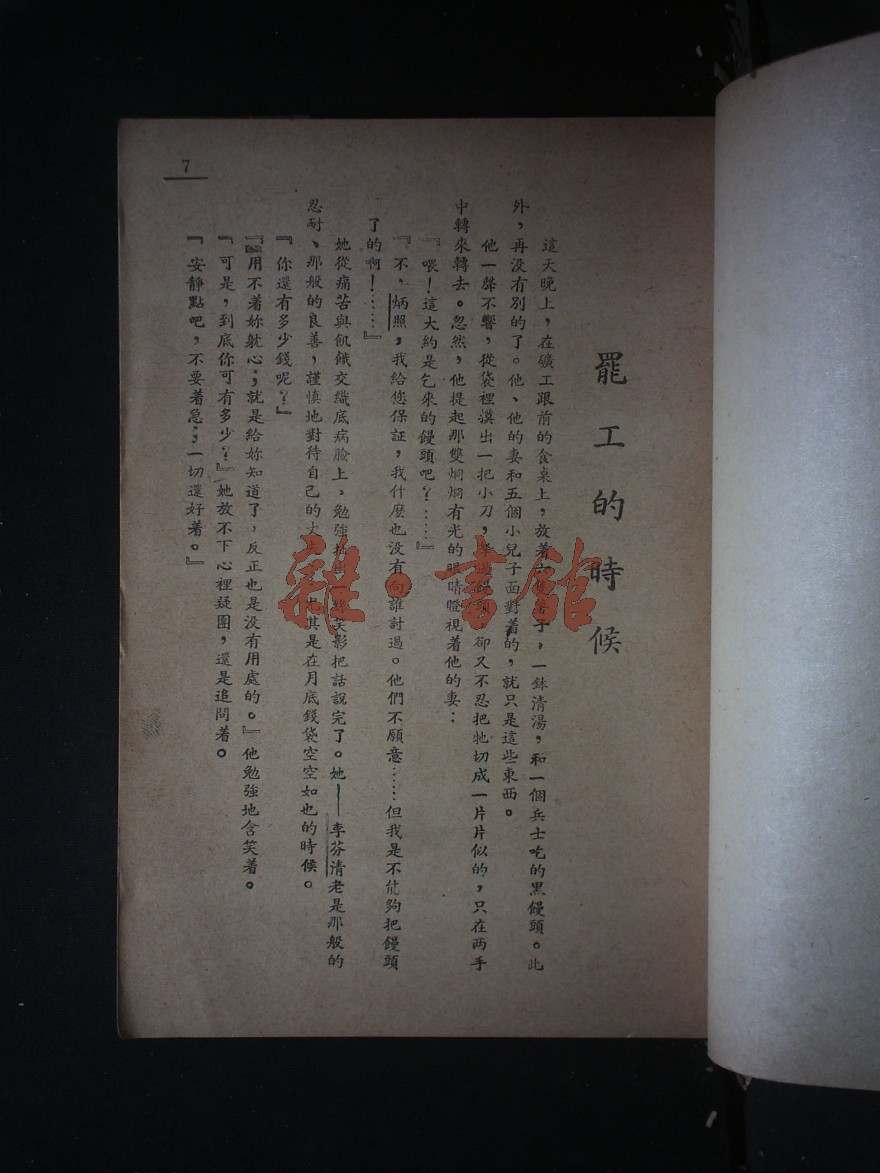 罷工的時候
這天晚上，在礦工跟前的食桌上，放着子，一鉢清湯，和一個兵士吃的黑饅頭。此
外，再没有別的了。他、他的妻和五個小兒子面對着的，就只是這些東西。
他一聲不響，從袋裡漠出一把小刀，卻又不忍把牠切成一片片似的，只在两手
中轉來轉去。忽然，他提起那雙烱烱有光的眼睛瞪視着他的妻：
『喂！這大約是乞來的饅頭吧？……』
『不，炳照，我給您保証，我什麼也没有向誰討過。他們不願意……但我是不能夠把饅頭
了的啊！……』
她從痛苦與飢餓交織底病臉上，勉強笑影把話說完了。她——李芬清老是那般的
忍耐、那般的良善，謹慎地對待自己的丈其是在月底錢袋空空如也的時候。
『你還有多少錢呢？』
『用不着妳躭心；就是給妳知道了，反正也是没有用處的。』他勉強地含笑着。
『可是，到底你可有多少？』她放不下心裡疑團，還是追問着。
『安靜點吧，不要着急；一切還好着。』
7
雜·書館